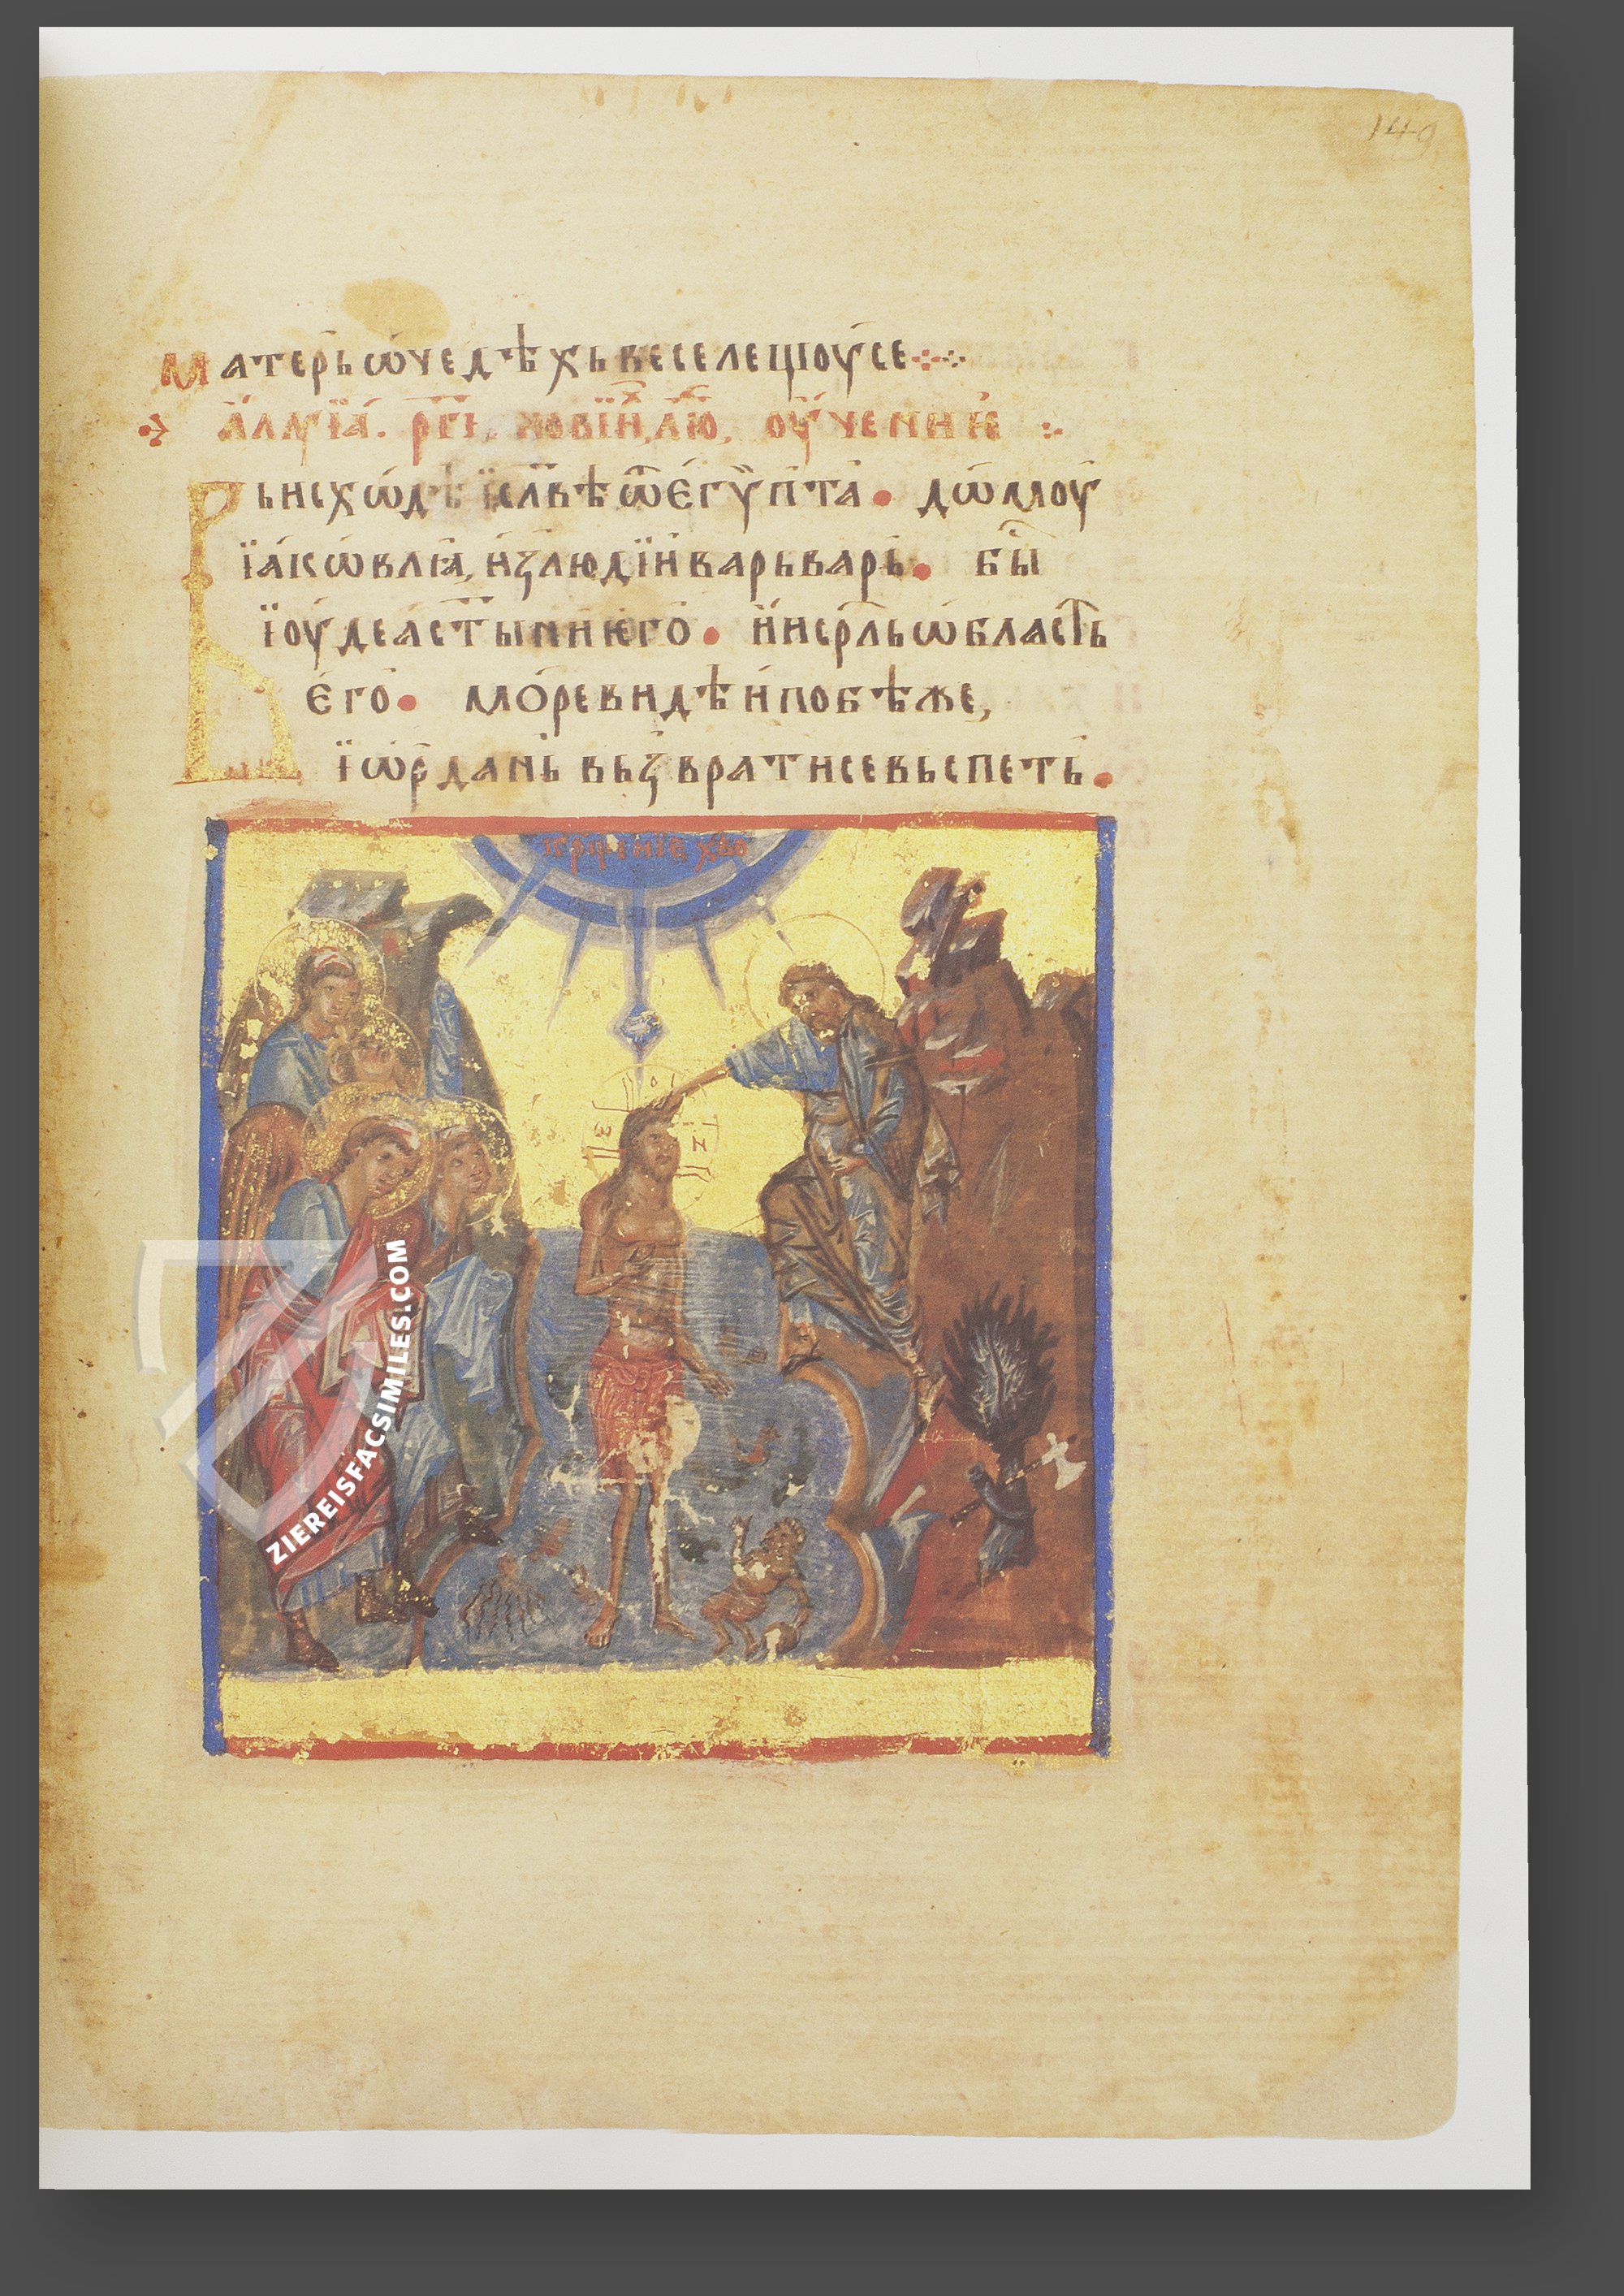 149
матерь ѡ чедѣхь веселещоу се
алⷧ҇гїа. рг҃і. хⷭ҇ѡвїи,лю, оученик
Вь исхѡдѣ ї҃слвѣ ѿ егѵпта • дѡмоу
їакѡвлꙗ, изⸯ людїи варьварь • бы
їоудеа ст҃ыни ѥго • и и҃срль ѡбласть
его • море видѣ и побѣже,
їѡрдань вьзврати се вьспеть •
крщенїе хв҃о
ѡ
ZIEREISFACSIMILES.COM